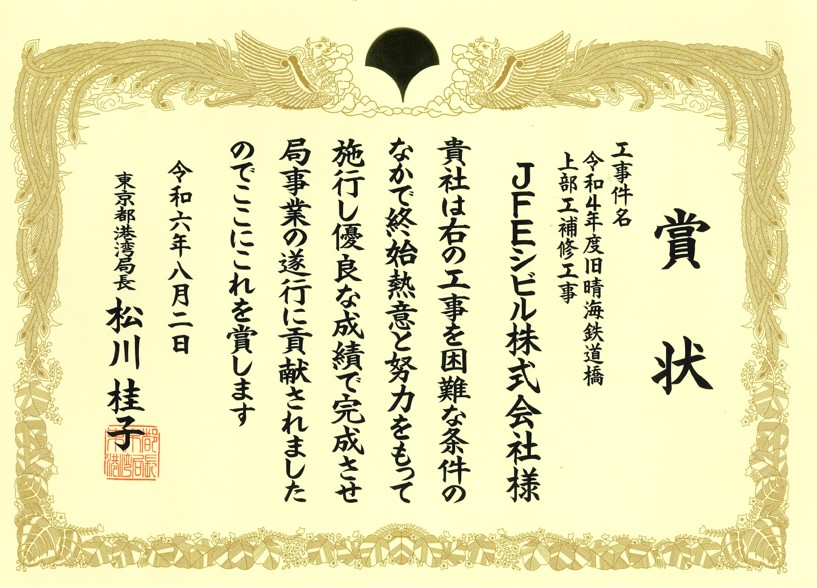 賞状
工事件名
令和4年度旧晴海鉄道橋
上部工補修工事
JFEシビル株式会社様
貴社は右の工事を困難な条件の
なかで終始熱意と努力をもって
施行し優良な成績で完成させ
局事業の遂行に貢献されました
のでここにこれを賞します
令和六年八月二日
東京都港湾局長 松川桂子